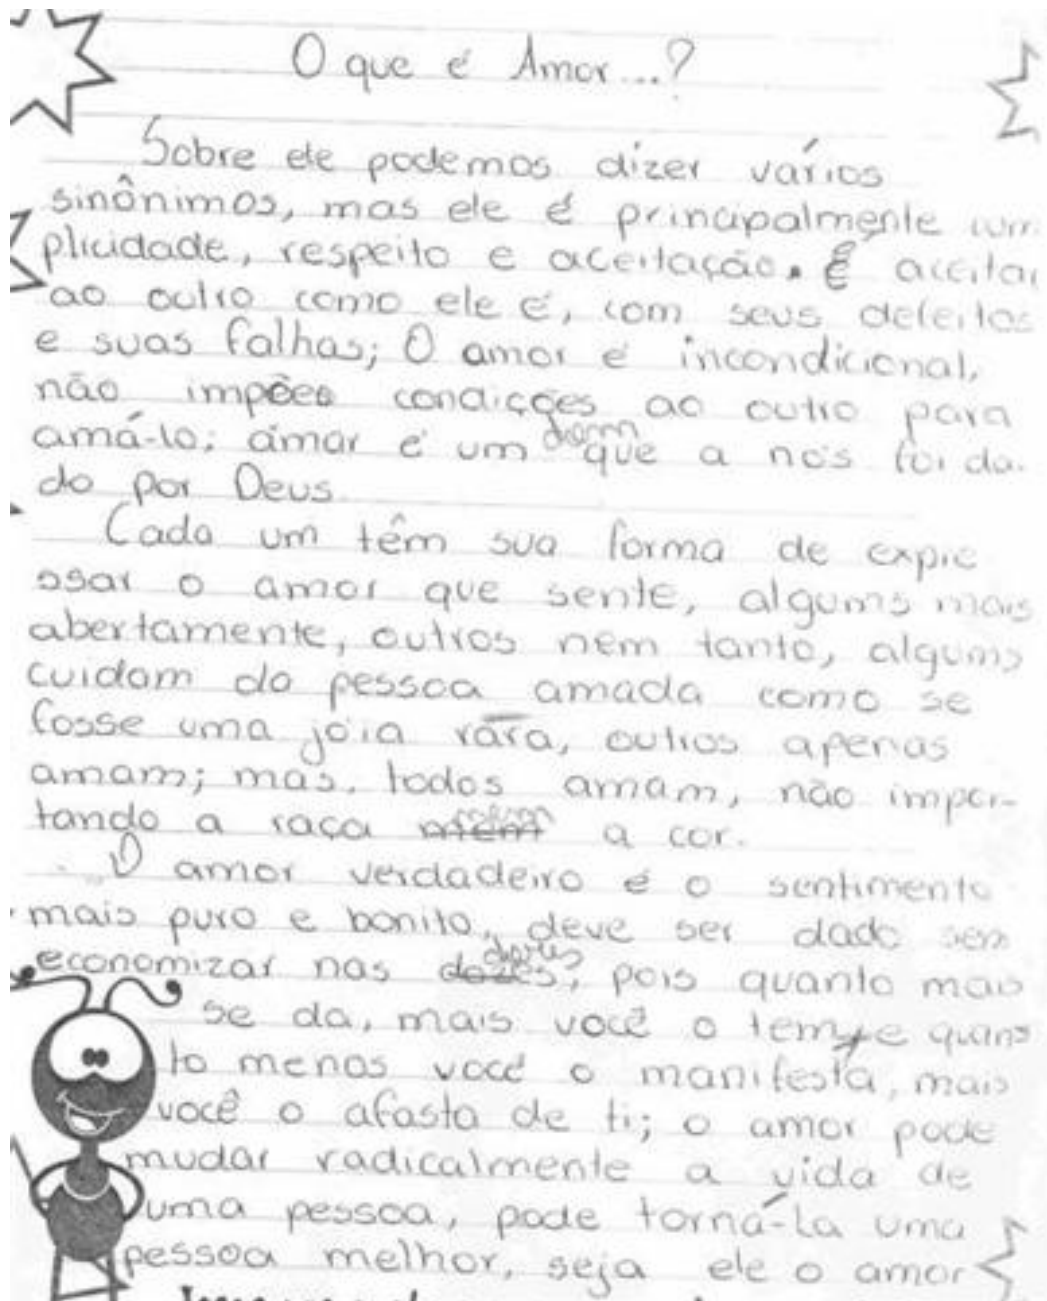 O que é Amor...?
Sobre ele podemos dizer vários
sinônimos, mas ele é principalmente cum
plicidade, respeito e aceitação. É aceitar
ao outro como ele é, com seus defeitos
e suas falhas; O amor é incondicional,
não impões condições ao outro para
amá-lo; amar é um dom que a nós foi da.
do por Deus
Cada um têm sua forma de expre
ssar o amor que sente, algums mais
abertamente, outros nem tanto, algums
cuidam da pessoa amada como se
fosse uma jóia rara, outros apenas
amam; mas, todos amam, não impor-
tando a raça a cor.
O amor verdadeiro é o sentimento
mais puro e bonito, deve ser dado sem
economizar nas doses, pois quanto mais
se da, mais você o tem e quan
to menos você o manifesta, mais
você o afasta de ti; o amor pode
mudar radicalmente a vida de
uma pessoa, pode torná-la uma
pessoa melhor, seja ele o amor